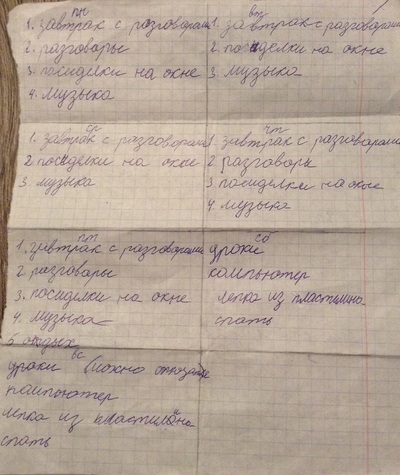 пн
1. завтрак с разговорами
2. разговоры
3. посиделки на окне
4. музыка
вт
1. завтрак с разговорами
2. посиделки на окне
3. музыка
ср
1. завтрак с разговорами
2 посиделки на окне
3. музыка
чт
1. завтрак с разговорами
2. разговоры
3. посиделки на окне
4. музыка
пт
1. завтрак с разговорами
2 разговоры
3. посиделки на окне
4. музыка
5 отдых
сб
уроки
компьютер
лепка из пластилина
спать
вс
уроки (можно
компьютер
лепка из пластилина
спать